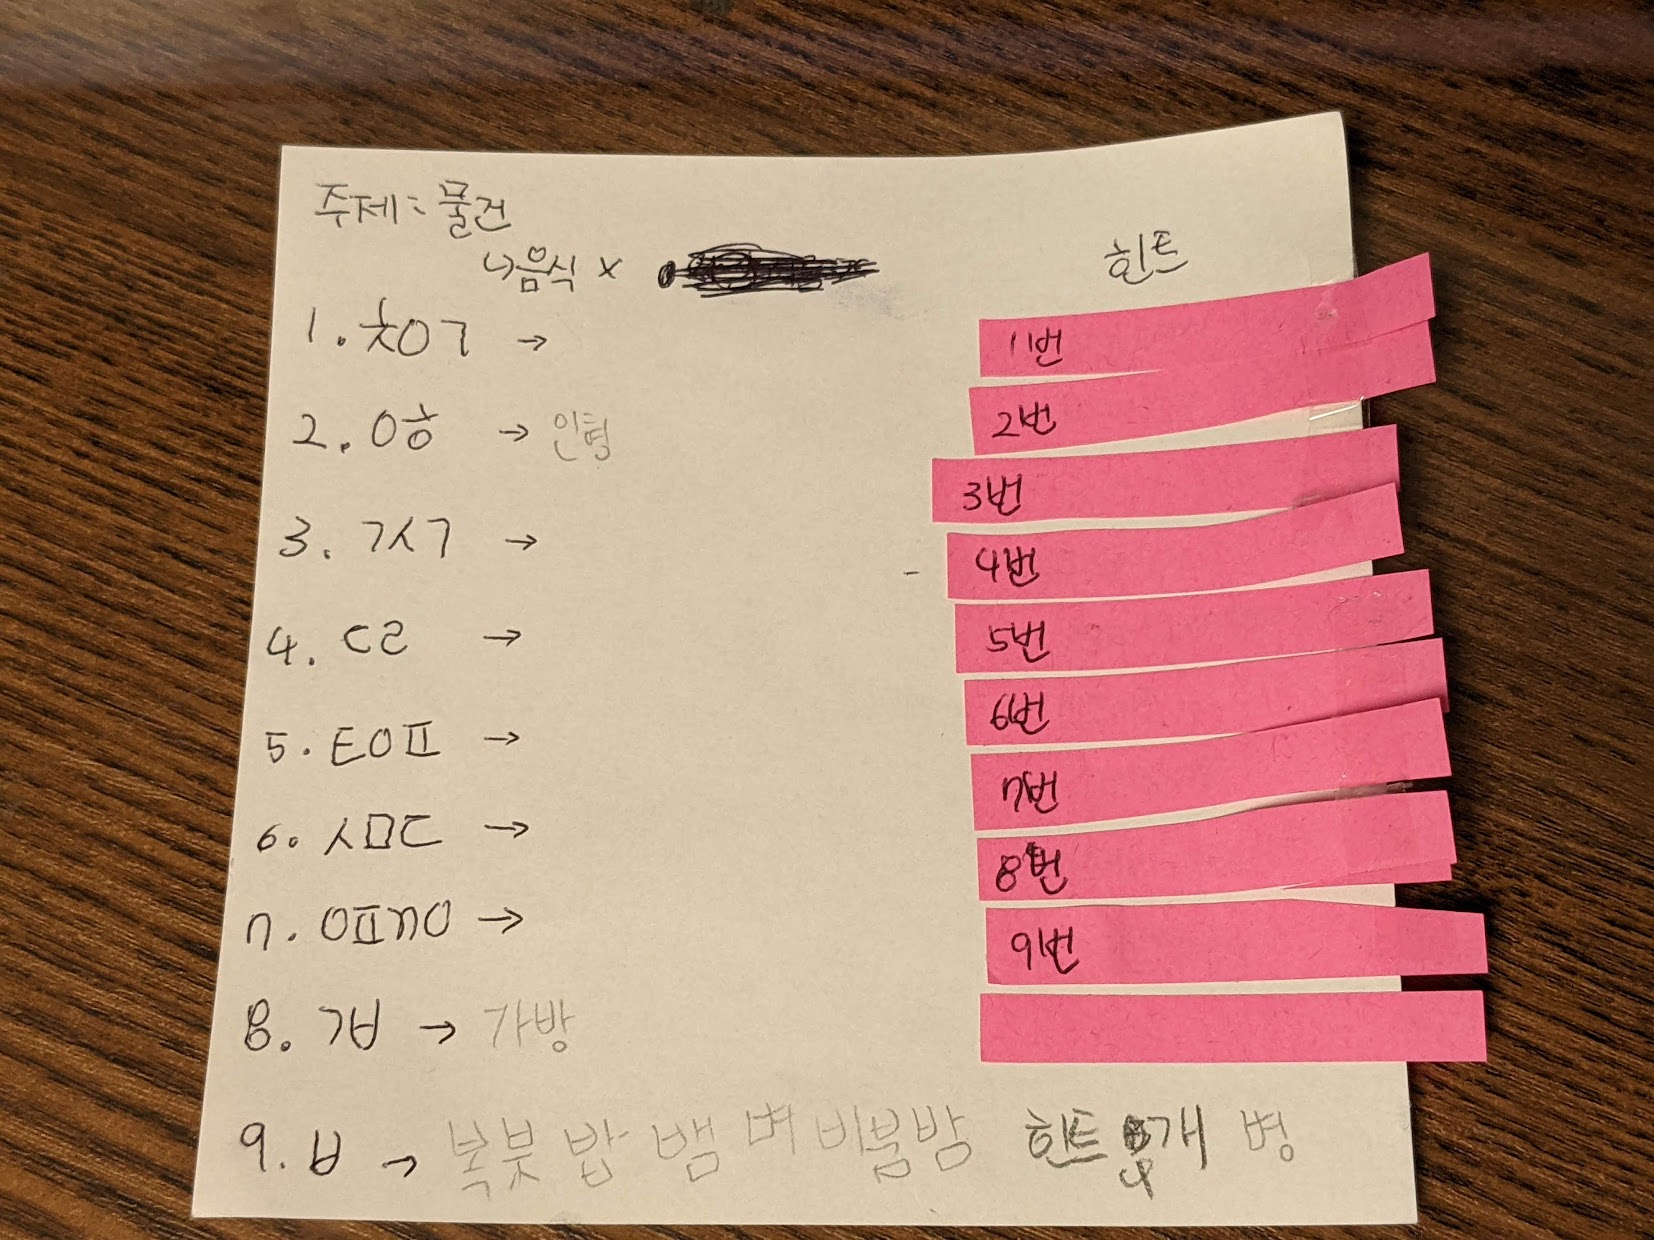 주제: 물건
↳음식 x
힌트
1. ㅊㅇㄱ →
1번
2. ㅇㅎ → 인형
2번
3. ㄱㅅㄱ →
3번
4. ㄷㄹ →
4번
5. ㅌㅇㅍ →
5번
6. ㅅㅁㄷ →
6번
7. ㅇㅍㅈㅇ →
7번
8. ㄱㅂ → 가방
8번
9번
9. ㅂ → 북 붓 밥 뱀 벼 비 붐 방 힌트 4개 병